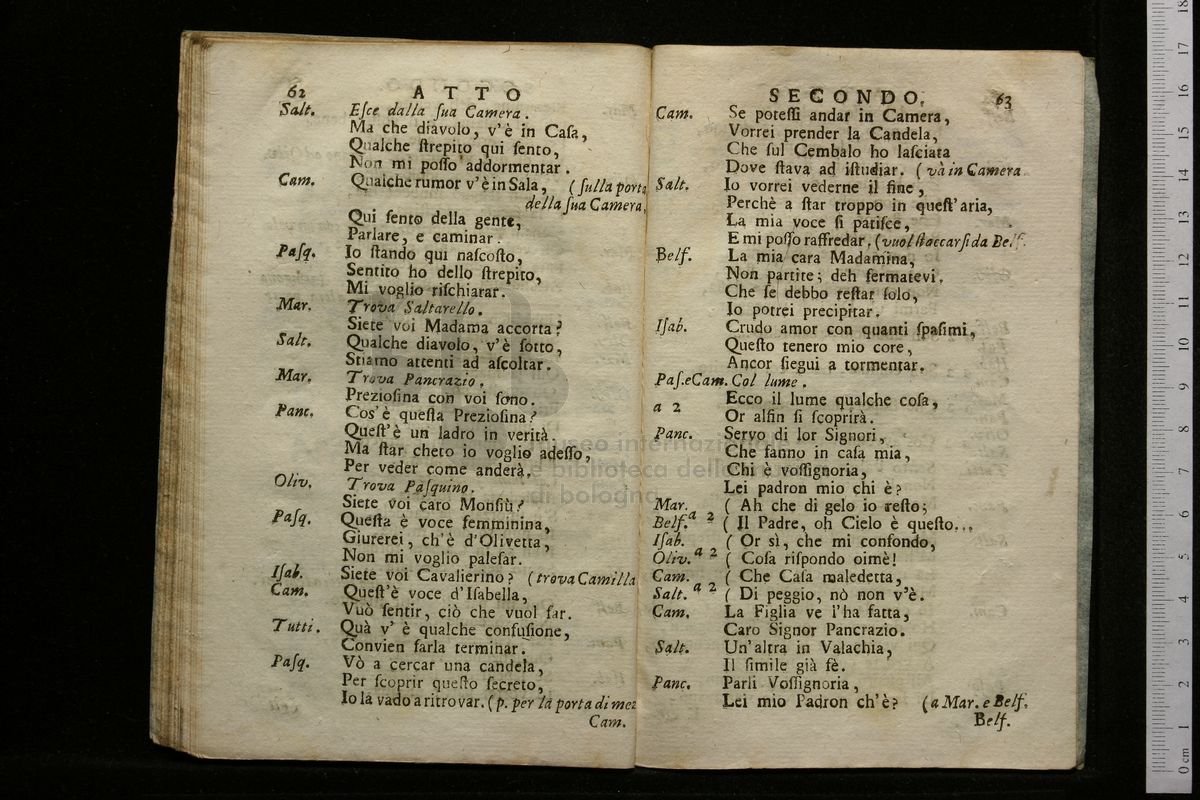 62 ATTO
Salt. Eſce dalla ſua Camera.
Ma che diavolo, v'è in Caſa,
Qualche ſtrepito qui ſento,
Non mi poſſo addormentar.
Cam. Qualche rumor v'è in Sala, (ſulla porta
della ſua Camera,
Qui ſento della gente,
Parlare, e caminar.
Paſq. Io ſtando qui naſcoſto,
Sentito ho dello ſtrepito,
Mi voglio riſchiarar.
Mar. Trova Saltarello.
Siete voi Madama accorta?
Salt. Qualche diavolo, v'è ſotto,
Stiamo attenti ad aſcoltar.
Mar. Trova Pancrazio.
Prezioſina con voi ſono.
Panc. Cos'è queſta Prezioſina?
Queſt'è un ladro in verità.
Ma ſtar cheto io voglio adeſſo,
Per veder come anderà.
Oliv. Trova Paſquino.
Siete voi caro Monſiù?
Paſq. Queſta è voce femminina,
Giurerei, ch'è d'Olivetta,
Non mi voglio paleſar.
Iſab. Siete voi Cavalierino? (trova Camilla
Cam. Queſt'è voce d'Iſabella,
Vuò ſentir, ciò che vuol far.
Tutti. Quà v'è qualche confuſione,
Convien farla terminar.
Paſq. Vò a cercar una candela,
Per ſcoprir queſto ſecreto,
Io la vado a ritrovar. (p. per la porta di mez
Cam.
SECONDO. 63
Cam. Se poteſſi andar in Camera,
Vorrei prender la Candela,
Che ſul Cembalo ho laſciata
Dove ſtava ad iſtudiar. (và in Camera
Salt. Io vorrei vederne il fine,
Perchè a ſtar troppo in queſt'aria,
La mia voce ſi patiſce,
E mi poſſo raffredar. (vuol ſtaccarſi da Belf.
Belf. La mia cara Madamina,
Non partite; deh fermatevi,
Che ſe debbo reſtar ſolo,
Io potrei precipitar.
Iſab. Crudo amor con quanti ſpaſimi,
Queſto tenero mio core,
Ancor ſiegui a tormentar.
Paſ. e Cam. Col lume.
a 2 Ecco il lume qualche coſa,
Or alfin ſi ſcoprirà.
Panc. Servo di lor Signori,
Che fanno in caſa mia,
Chi è voſſignoria,
Lei padron mio chi è?
Mar. a 2 ( Ah che di gelo io reſto;
Belf. ( Il Padre, oh Cielo è queſto...
Iſab. a 2 ( Or sì, che mi confondo,
Oliv. ( Coſa riſpondo oimè!
Cam. a 2 ( Che Caſa maledetta,
Salt. ( Di peggio, nò non v'è.
Cam. La Figlia ve l'ha fatta,
Caro Signor Pancrazio.
Salt. Un'altra in Valachia,
Il ſimile già fè.
Panc. Parli Voſſignoria,
Lei mio Padron ch'è? (a Mar. e Belf.
Belf.
museo internazionale
e biblioteca della
di bologna
0 cm 1 2 3 4 5 6 7 8 9 10 11 12 13 14 15 16 17 18